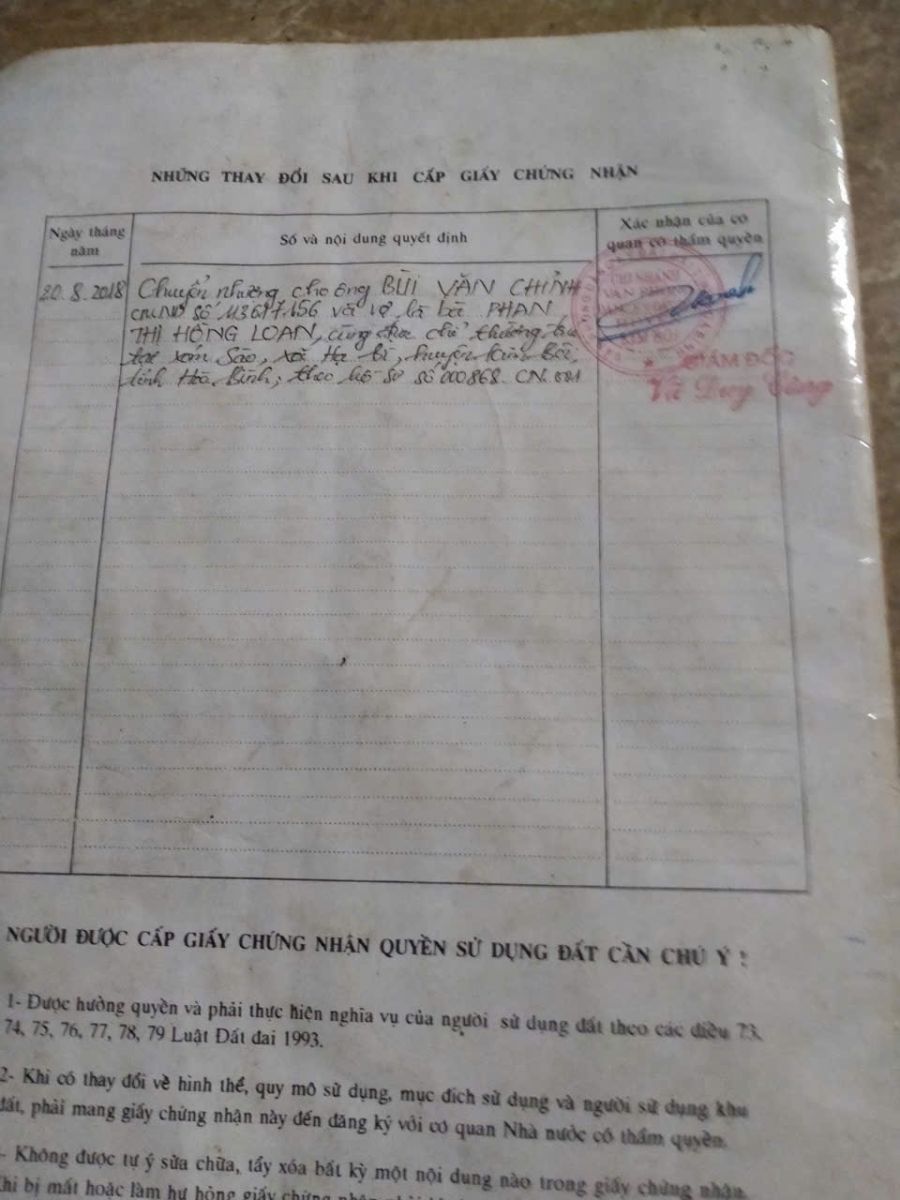 NHỮNG THAY ĐỔI SAU KHI CẤP GIẤY CHỨNG NHẬN
Ngày tháng năm
Số và nội dung quyết định
Xác nhận của cơ quan có thẩm quyền
20.8.2018
Chuyển nhượng cho ông BÙI VĂN CHỈNH
CMND số 113617156 và vợ là bà PHAN
THỊ HỒNG LOAN, cùng địa chỉ thường trú
tại xóm Sào, xã Hạ Bì, huyện Kim Bôi,
tỉnh Hòa Bình; theo hồ sơ số 000868. CN. 001
CHI NHÁNH
VĂN PHÒNG
KIM BÔI
GIÁM ĐỐC
Vũ Duy
NGƯỜI ĐƯỢC CẤP GIẤY CHỨNG NHẬN QUYỀN SỬ DỤNG ĐẤT CẦN CHÚ Ý !
1- Được hưởng quyền và phải thực hiện nghĩa vụ của người sử dụng đất theo các điều 73,
74, 75, 76, 77, 78, 79 Luật Đất đai 1993.
2- Khi có thay đổi về hình thể, quy mô sử dụng, mục đích sử dụng và người sử dụng khu
đất, phải mang giấy chứng nhận này đến đăng ký với cơ quan Nhà nước có thẩm quyền.
- Không được tự ý sửa chữa, tẩy xóa bất kỳ một nội dung nào trong giấy chứng nhận.
Khi bị mất hoặc làm hư hỏng giấy chứng nhận